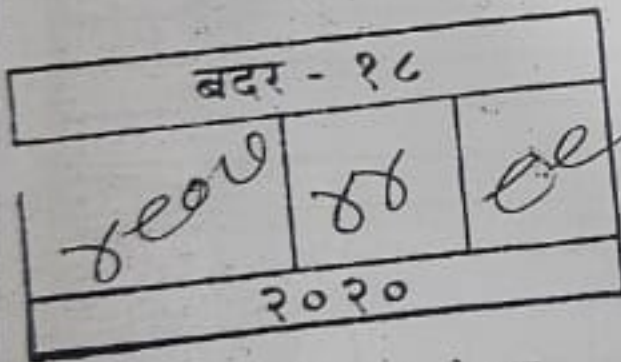 बदर - १८
४९०७ ४४ ९९
२०२०